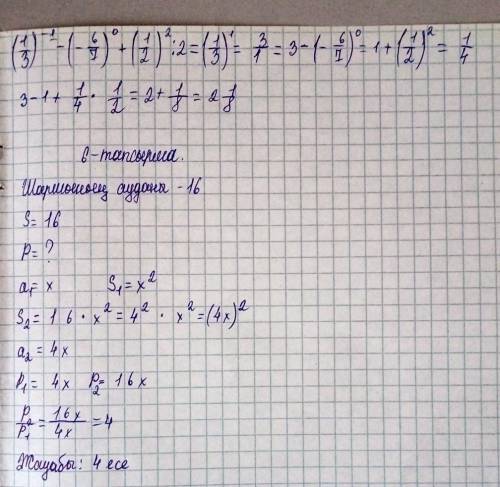 (1/3)^-1 - (-6/7)^0 + (1/2)^2 : 2 = (1/3)^1 = 3/1 = 3 - (-6/7)^0 = 1 + (1/2)^2 = 1/4
3 - 1 + 1/4 · 1/2 = 2 + 1/8 = 2 1/8
6-тапсырма.
ауданы - 16
S = 16
P = ?
a₁ = x S₁ = x²
S₂ = 16 · x² = 4² · x² = (4x)²
a₂ = 4x
P₁ = 4x P₂ = 16x
P₂/P₁ = 16x/4x = 4
Жауабы: 4 есе